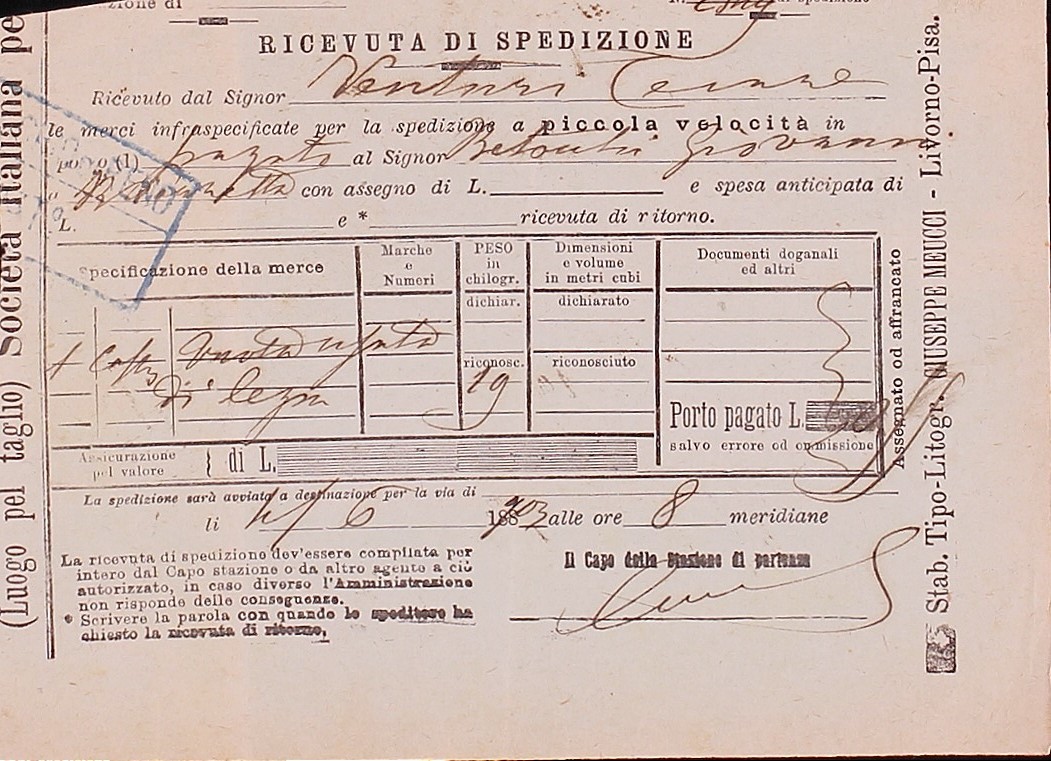 zione di
di spedizione
RICEVUTA DI SPEDIZIONE
Ricevuto dal Signor Venturi
le merci infraspecificate per la spedizione a piccola velocità in
porto (1) pagato al Signor Giovanni
con assegno di L. e spesa anticipata di
L. e * ricevuta di ritorno.
Specificazione della merce
Marche e Numeri
PESO in chilogr.
Dimensioni e volume in metri cubi
Documenti doganali ed altri
dichiar.
dichiarato
1 vuota usata
riconosc.
riconosciuto
di legno
19
Porto pagato L.
salvo errore od ommissione
Assicurazione pel valore } di L.
La spedizione sarà avviata a destinazione per la via di
li 6 188 903 alle ore 8 meridiane
La ricevuta di spedizione dev'essere compilata per
intero dal Capo stazione o da altro agente a ciò
autorizzato, in caso diverso l'Amministrazione
non risponde delle conseguenze.
* Scrivere la parola con quando lo speditore ha
chiesto la ricevuta di ritorno,
Il Capo della Stazione di partenza
(Luogo pel taglio) Società Italiana pe
Assegnato od affrancato
Stab. Tipo-Litogr. GIUSEPPE MEUCCI - Livorno-Pisa.